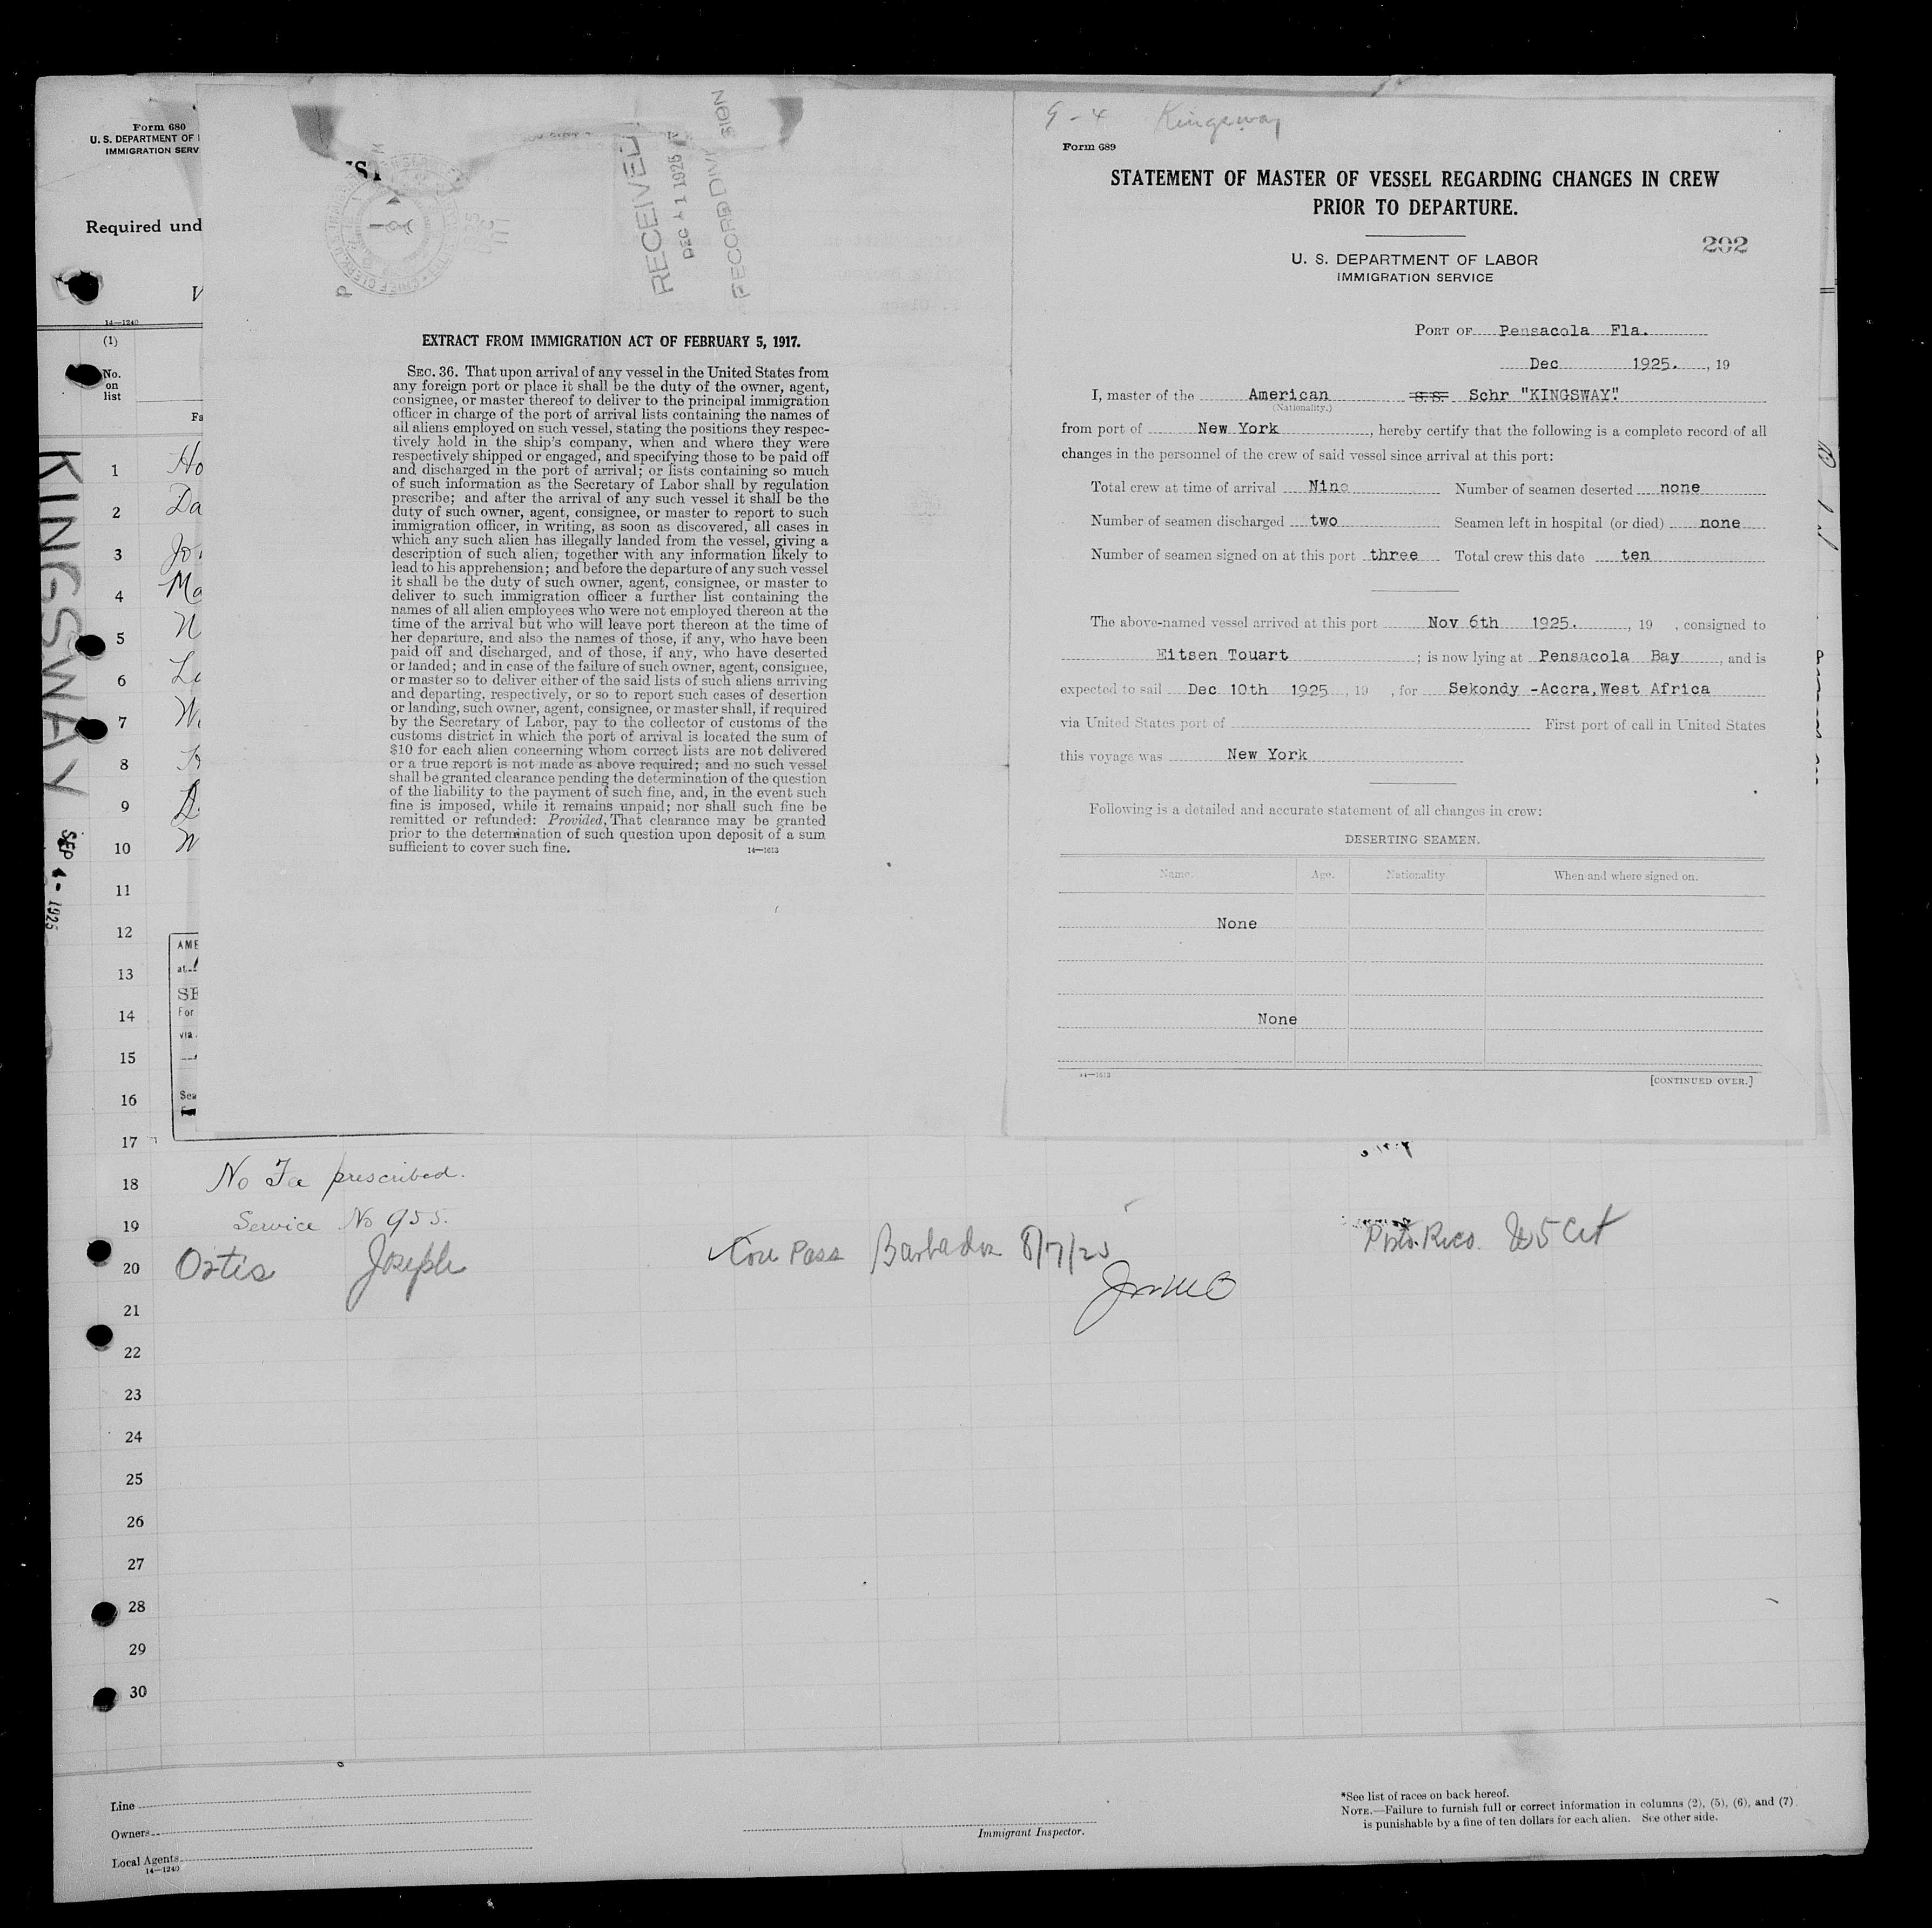 Form 680
U. S. DEPARTMENT OF
IMMIGRATION SERV
Required und
14—1240
(1)
No.
on
list
Fa
KINGSWAY
SEP 4 - 1925
1 Ho
2 Da
3 Jo
4 Ma
5
6
7
8
9
10
11
12
13
14
15
16
17
AME
at
SE
For
via
Sea
RECEIVED
DEC 11 1925
RECORD DIVISION
EXTRACT FROM IMMIGRATION ACT OF FEBRUARY 5, 1917.
SEC. 36. That upon arrival of any vessel in the United States from
any foreign port or place it shall be the duty of the owner, agent,
consignee, or master thereof to deliver to the principal immigration
officer in charge of the port of arrival lists containing the names of
all aliens employed on such vessel, stating the positions they respec-
tively hold in the ship's company, when and where they were
respectively shipped or engaged, and specifying those to be paid off
and discharged in the port of arrival; or lists containing so much
of such information as the Secretary of Labor shall by regulation
prescribe; and after the arrival of any such vessel it shall be the
duty of such owner, agent, consignee, or master to report to such
immigration officer, in writing, as soon as discovered, all cases in
which any such alien has illegally landed from the vessel, giving a
description of such alien, together with any information likely to
lead to his apprehension; and before the departure of any such vessel
it shall be the duty of such owner, agent, consignee, or master to
deliver to such immigration officer a further list containing the
names of all alien employees who were not employed thereon at the
time of the arrival but who will leave port thereon at the time of
her departure, and also the names of those, if any, who have been
paid off and discharged, and of those, if any, who have deserted
or landed; and in case of the failure of such owner, agent, consignee,
or master so to deliver either of the said lists of such aliens arriving
and departing, respectively, or so to report such cases of desertion
or landing, such owner, agent, consignee, or master shall, if required
by the Secretary of Labor, pay to the collector of customs of the
customs district in which the port of arrival is located the sum of
$10 for each alien concerning whom correct lists are not delivered
or a true report is not made as above required; and no such vessel
shall be granted clearance pending the determination of the question
of the liability to the payment of such fine, and, in the event such
fine is imposed, while it remains unpaid; nor shall such fine be
remitted or refunded: Provided, That clearance may be granted
prior to the determination of such question upon deposit of a sum
sufficient to cover such fine.
14—1613
9-4 Kingsway
Form 689
STATEMENT OF MASTER OF VESSEL REGARDING CHANGES IN CREW
PRIOR TO DEPARTURE.
292
U. S. DEPARTMENT OF LABOR
IMMIGRATION SERVICE
PORT OF Pensacola Fla.
Dec 1925. , 19
I, master of the American S.S. Schr "KINGSWAY".
(Nationality.)
from port of New York , hereby certify that the following is a complete record of all
changes in the personnel of the crew of said vessel since arrival at this port:
Total crew at time of arrival Nine Number of seamen deserted none
Number of seamen discharged two Seamen left in hospital (or died) none
Number of seamen signed on at this port three Total crew this date ten
The above-named vessel arrived at this port Nov 6th 1925. , 19 , consigned to
Eitsen Touart ; is now lying at Pensacola Bay , and is
expected to sail Dec 10th 1925 , 19 , for Sekondy -Accra, West Africa
via United States port of First port of call in United States
this voyage was New York
Following is a detailed and accurate statement of all changes in crew:
DESERTING SEAMEN.
Name. Age. Nationality When and where signed on.
None
None
14—1613
[CONTINUED OVER.]
18 No Fee prescribed.
19 Service No 955.
20 Ortis Joseph Con Pass Barbados 8/7/25 Porto Rico
21
22
23
24
25
26
27
28
29
30
Line
Owners
Local Agents
14—1240
Immigrant Inspector.
*See list of races on back hereof.
NOTE.—Failure to furnish full or correct information in columns (2), (5), (6), and (7)
is punishable by a fine of ten dollars for each alien. See other side.